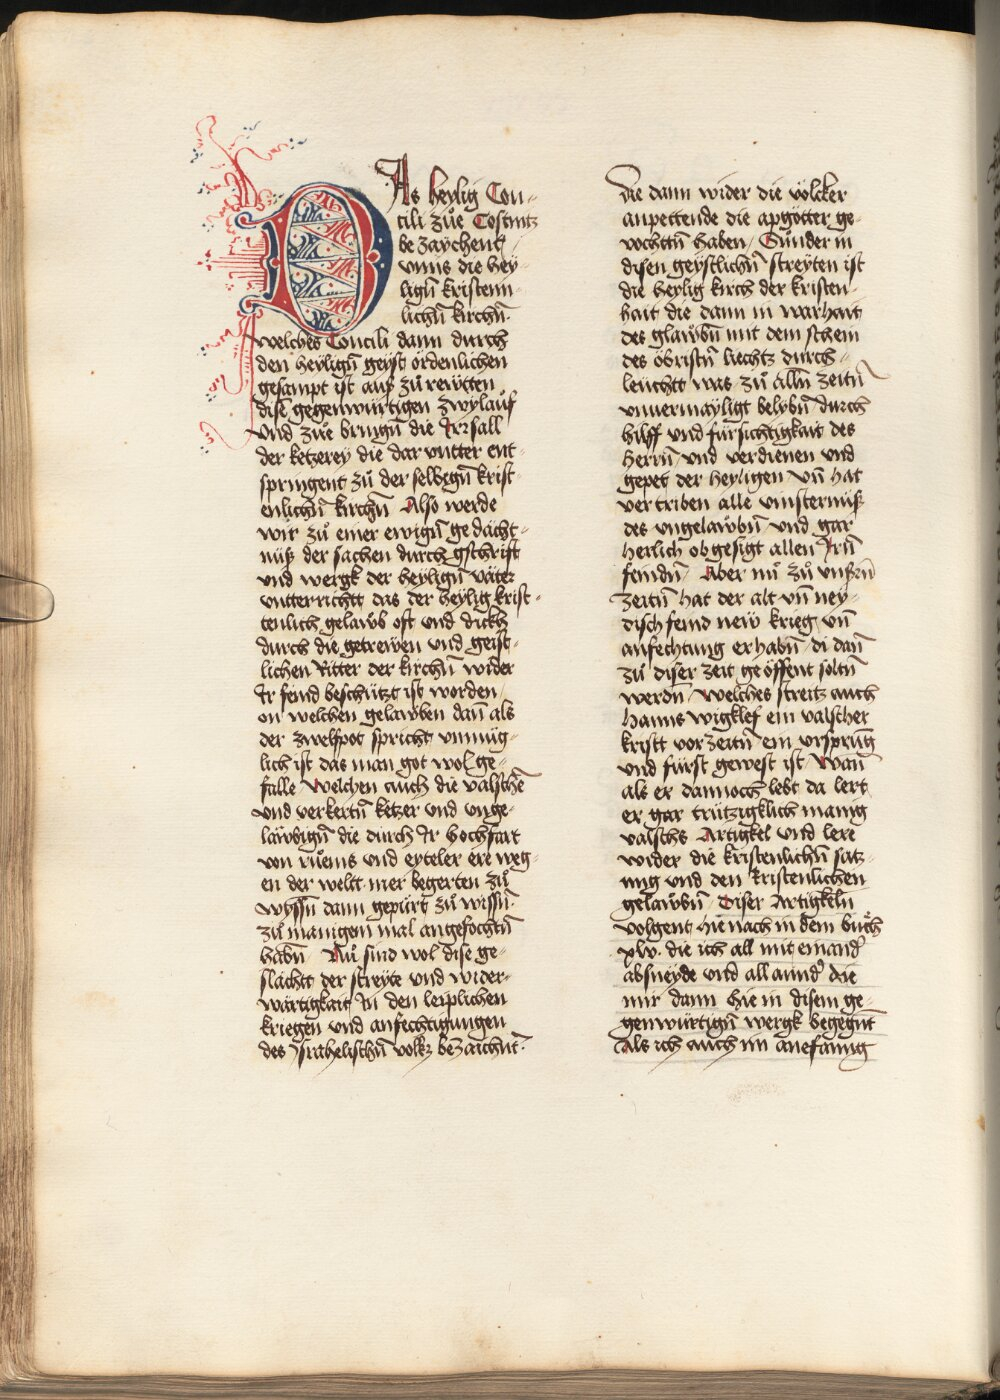 DAs heylig Con-
cili zůe Costnitz
be zaychent /
vnns die hey-
ligñ kristenn-
lichñ kirchñ·
welches Concili dann durch
den heyligñ geyst ordenlichen
gesampt ist auß zů rewtten
dise gegenwürtigen zwylauf
vnd zůe bringñ die Irrsall
der ketzerey die dar vntter ent-
springent zů der selbegñ krist-
enlichñ kirchñ Also werde
wir zů einer ewigñ gedächt-
nüß der sachen durch gschrift
vnd wergk der heyligñ väter
vntterrichtt das der heylig krist-
tenlich gelawb oft vnd dickh
durch die getrewen vnd geist-
lichen Ritter der kirchñ wider
Ir feind beschützt ist worden /
on welchen gelawben dañ als
der zwelfpot spricht vnmüg-
lich ist das man got wol ge-
falle Welchen auch die valschẽ
vnd verkertñ ketzer vnd vnge-
läwbigñ die durch Ir hochfart
von růems vnd eyteler ere weg-
en der weltt mer begerten zů
wyssñ dann gepürt zů wissñ·
zů manigem mal angefochtñ
habñ Nů sind wol dise ge-
slächtt der streyte vnd wider-
wärtigkait In den leiplichen
kriegen vnd anfechtigungen
des Israhelischñ volkz bezaichnt·
die dann wider die völcker
anpettende die apgötter ge-
vochttñ haben / Sünder in
disen geystlichñ streyten ist
die heylig kirch der kristen-
hait die dann in warhait
des glawbñ mit dem schein
des öbristñ liechtz durch-
leuchtt was zů allñ zeitñ
vnuermäyligt belybñ durch
hilff vnd fürsichtigkait des
herrñ / vnd verdienen vnd
gepet der heyligen vñ hat
vertriben alle vinsternüß
des vngelawbñ / vnd gar
herlich obgesigt allen Irñ
feindñ / Aber nů zů vnßrñ
zeitñ hat der alt vñ ney-
disch feind new krieg vñ
anfechtung erhabñ / di dañ
zů diser zeit geöffent soltñ
werdñ / Welches streitz auch
hanns wigklef ein valscher
kristt vor zeitñ ein vrsprũg
vnd fürst gewest ist / Wañ
als er dannoch lebt da lert
er gar trützigklich manig
valschs Artigkel vnd lere
wider die kristenlichñ satz-
ung vnd den kristenlichen
gelawbñ / Diser Artigkeln
volgent hie nach in dem bůch
xlv· die ich all mit einandᵉ
absneyde vnd all anndᵉ die
mir dann hie in disem ge-
genwürtigñ wergk begegnt
Als ich auch im anefanng